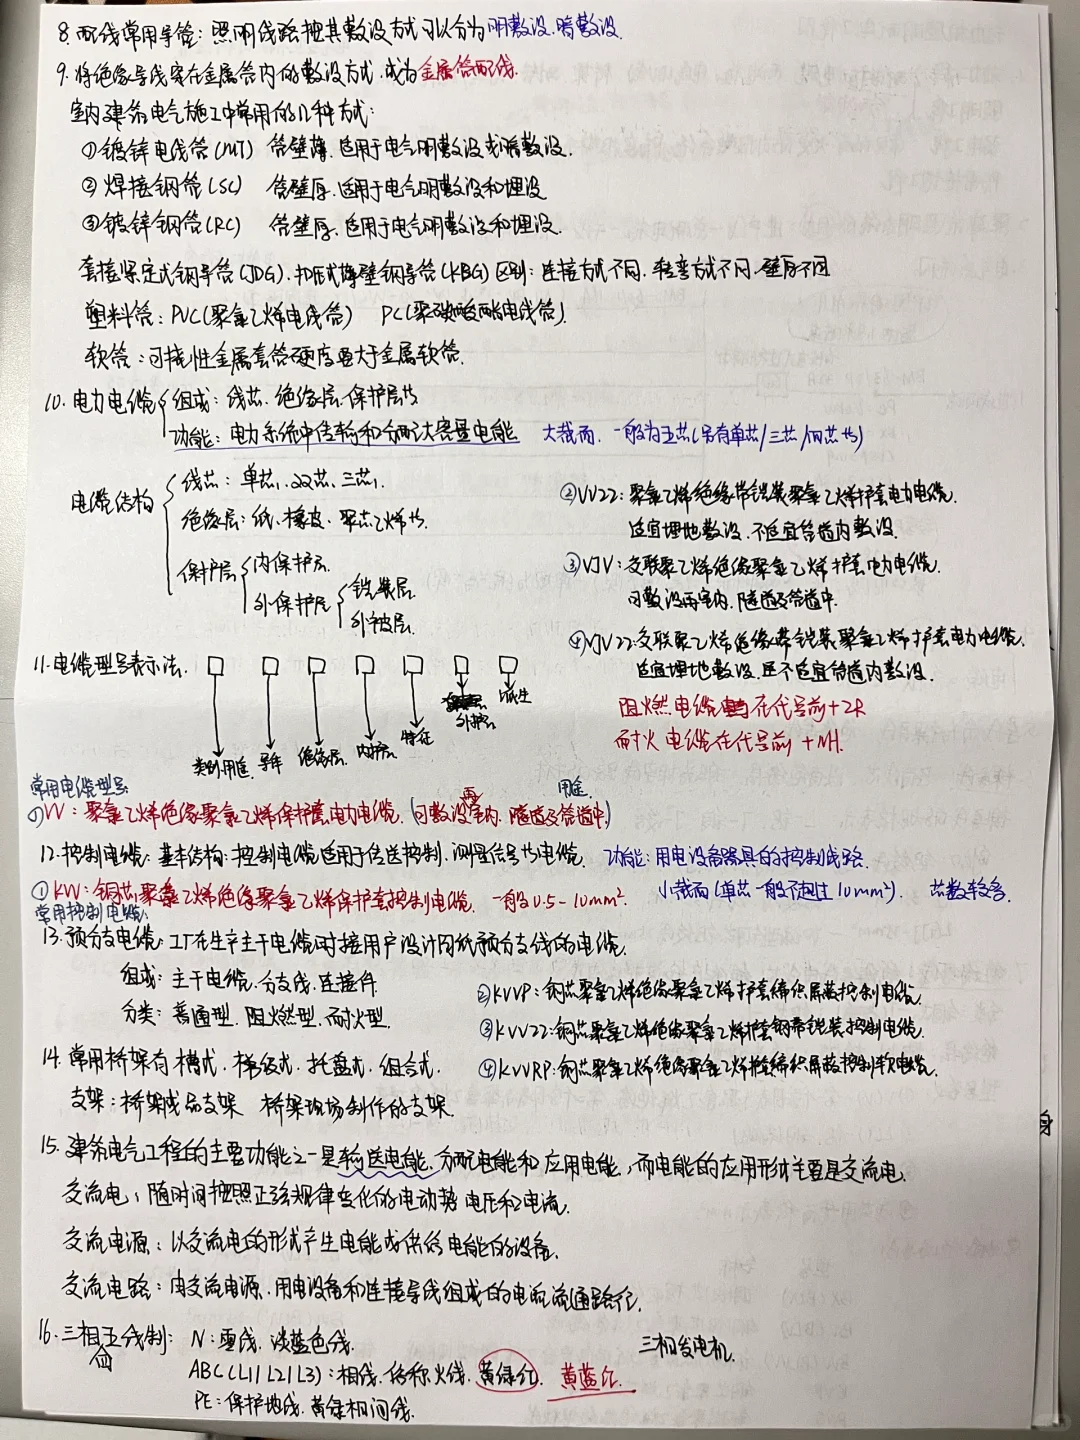 8. 配线常用导管：照明线路按其敷设方式可以分为明敷设、暗敷设.
9. 将绝缘导线穿在金属管内的敷设方式，成为金属管配线.
室内建筑电气施工中常用的几种方式：
①镀锌电线管(MT) 管壁薄.适用于电气明敷设或暗敷设.
②焊接钢管(SC) 管壁厚.适用于电气明敷设和埋设
③镀锌钢管(RC) 管壁厚.适用于电气明敷设和埋设.
套接紧定式钢导管(JDG).扣压式薄壁钢导管(KBG)区别：连接方式不同.转弯方式不同.壁厚不同
塑料管：PVC(聚氯乙烯电线管) PC(聚碳酸酯电线管).
软管：可挠性金属套管硬度要大于金属软管.
10. 电力电缆 组成：线芯.绝缘层.保护层等
功能：电力系统中传输和分配大容量电能 大截面.一般为五芯(另有单芯/三芯/四芯等)
电缆结构 线芯：单芯、双芯、三芯.
绝缘层：纸.橡皮.聚氯乙烯等.
保护层 内保护层.
外保护层 铠装层.
外被层.
②VV22：聚氯乙烯绝缘带铠装聚氯乙烯护套电力电缆.
适宜埋地敷设.不适宜管道内敷设.
③YJV：交联聚乙烯绝缘聚氯乙烯护套电力电缆.
可敷设再室内.隧道及管道中.
④YJV22：交联聚乙烯绝缘带铠装聚氯乙烯护套电力电缆.
适宜埋地敷设.但不适宜管道内敷设.
阻燃电缆在代号前+ZR
耐火电缆在代号前+NH.
11. 电缆型号表示法.
类别用途. 导体 绝缘层. 内护层. 特征 外护层 派生
常用电缆型号 用途.
①VV：聚氯乙烯绝缘聚氯乙烯保护套电力电缆.(可敷设再室内.隧道及管道中.)
12. 控制电缆：基本结构：控制电缆适用于传送控制.测量信号等电缆. 功能：用电设备器具的控制线路.
①KVV：铜芯聚氯乙烯绝缘聚氯乙烯保护套控制电缆. 一般0.5-10mm². 小截面(单芯一般不超过10mm²). 芯数较多.
常用控制电缆：
13. 预分支电缆：工厂在生产主干电缆时按用户设计图纸预分支线的电缆.
组成：主干电缆.分支线.连接件.
分类：普通型.阻燃型.耐火型.
②KVVP：铜芯聚氯乙烯绝缘聚氯乙烯护套编织屏蔽控制电缆.
③KVV22：铜芯聚氯乙烯绝缘聚氯乙烯护套钢带铠装控制电缆.
④KVVRP：铜芯聚氯乙烯绝缘聚氯乙烯护套编织屏蔽控制软电缆.
14. 常用桥架有 槽式.梯级式.托盘式.组合式.
支架：桥架成品支架 桥架现场制作的支架.
15. 建筑电气工程的主要功能之一是输送电能.分配电能和应用电能，而电能的应用形式主要是交流电.
交流电：随时间按照正弦规律变化的电动势 电压和电流.
交流电源：以交流电的形式产生电能或供给电能的设备.
交流电路：由交流电源.用电设备和连接导线组成的电流流通路径.
16. 三相五线制： N：零线.淡蓝色线. 三相发电机.
ABC(L1 L2 L3)：相线.俗称火线.黄绿红. 黄蓝红.
PE：保护地线.黄绿相间线.